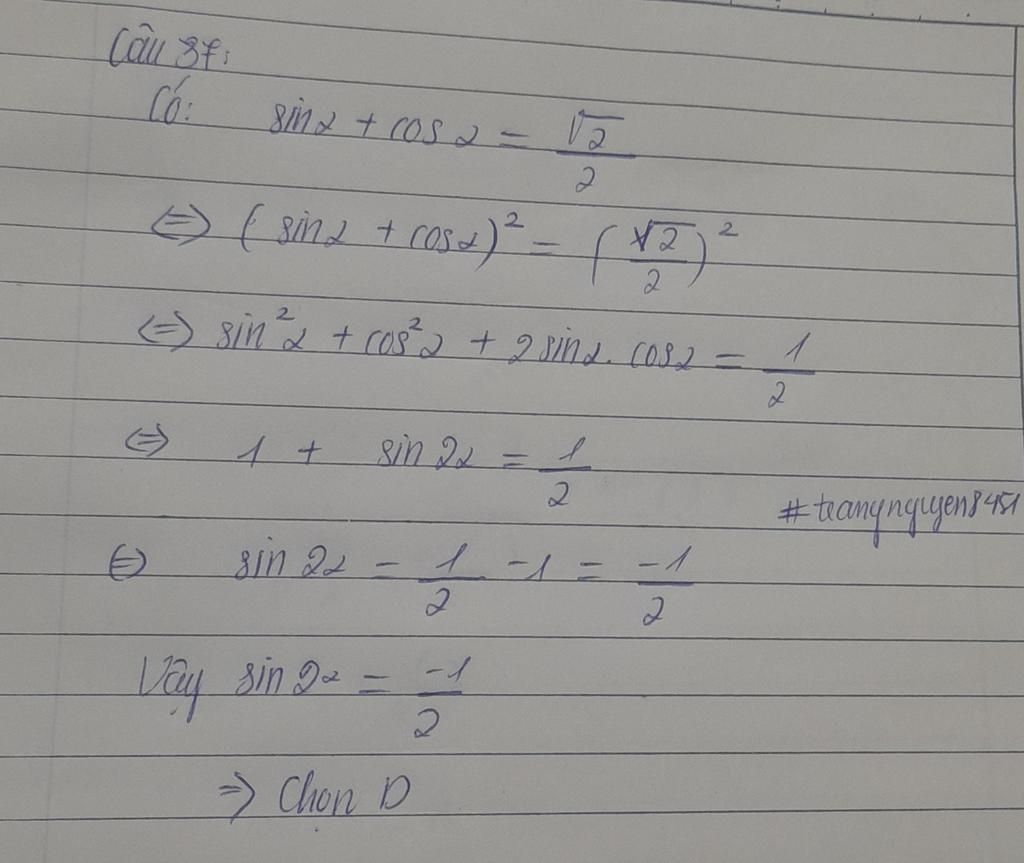 Câu 37:
Có: sinα + cosα = √2/2
⇔ (sinα + cosα)² = (√2/2)²
⇔ sin²α + cos²α + 2sinα.cosα = 1/2
⇔ 1 + sin2α = 1/2
#trangnguyen8451
⇔ sin2α = 1/2 - 1 = -1/2
Vậy sin2α = -1/2
⇒ Chọn D